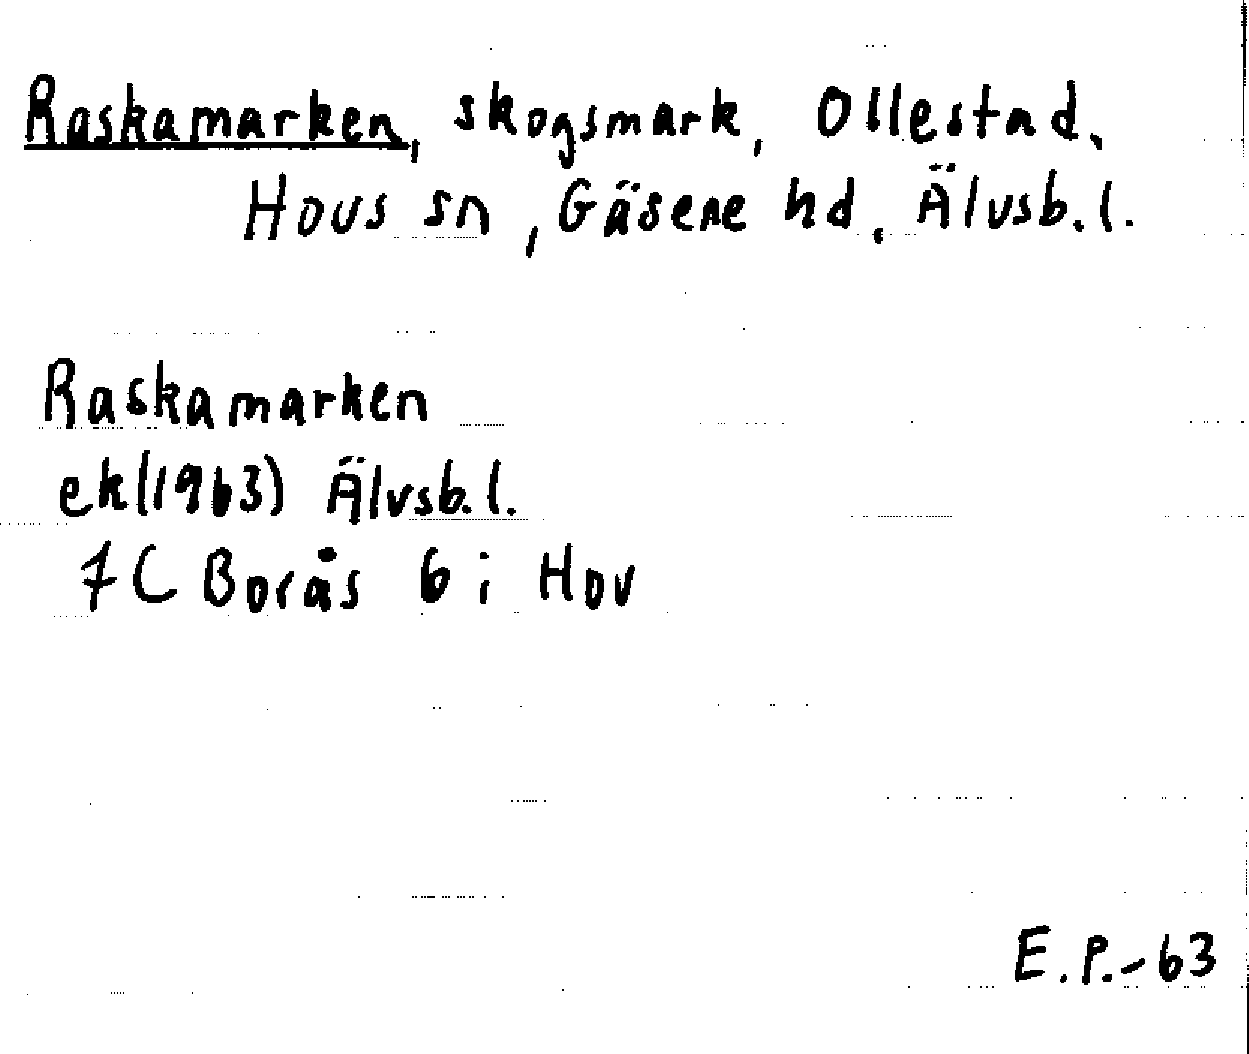 Raskamarken, skogsmark, Ollestad,
Hovs sn, Gäsene hd, Älvsb. l.
Raskamarken
ek(1963) Älvsb. l.
7C Borås 6 i Hov
E. P. - 63